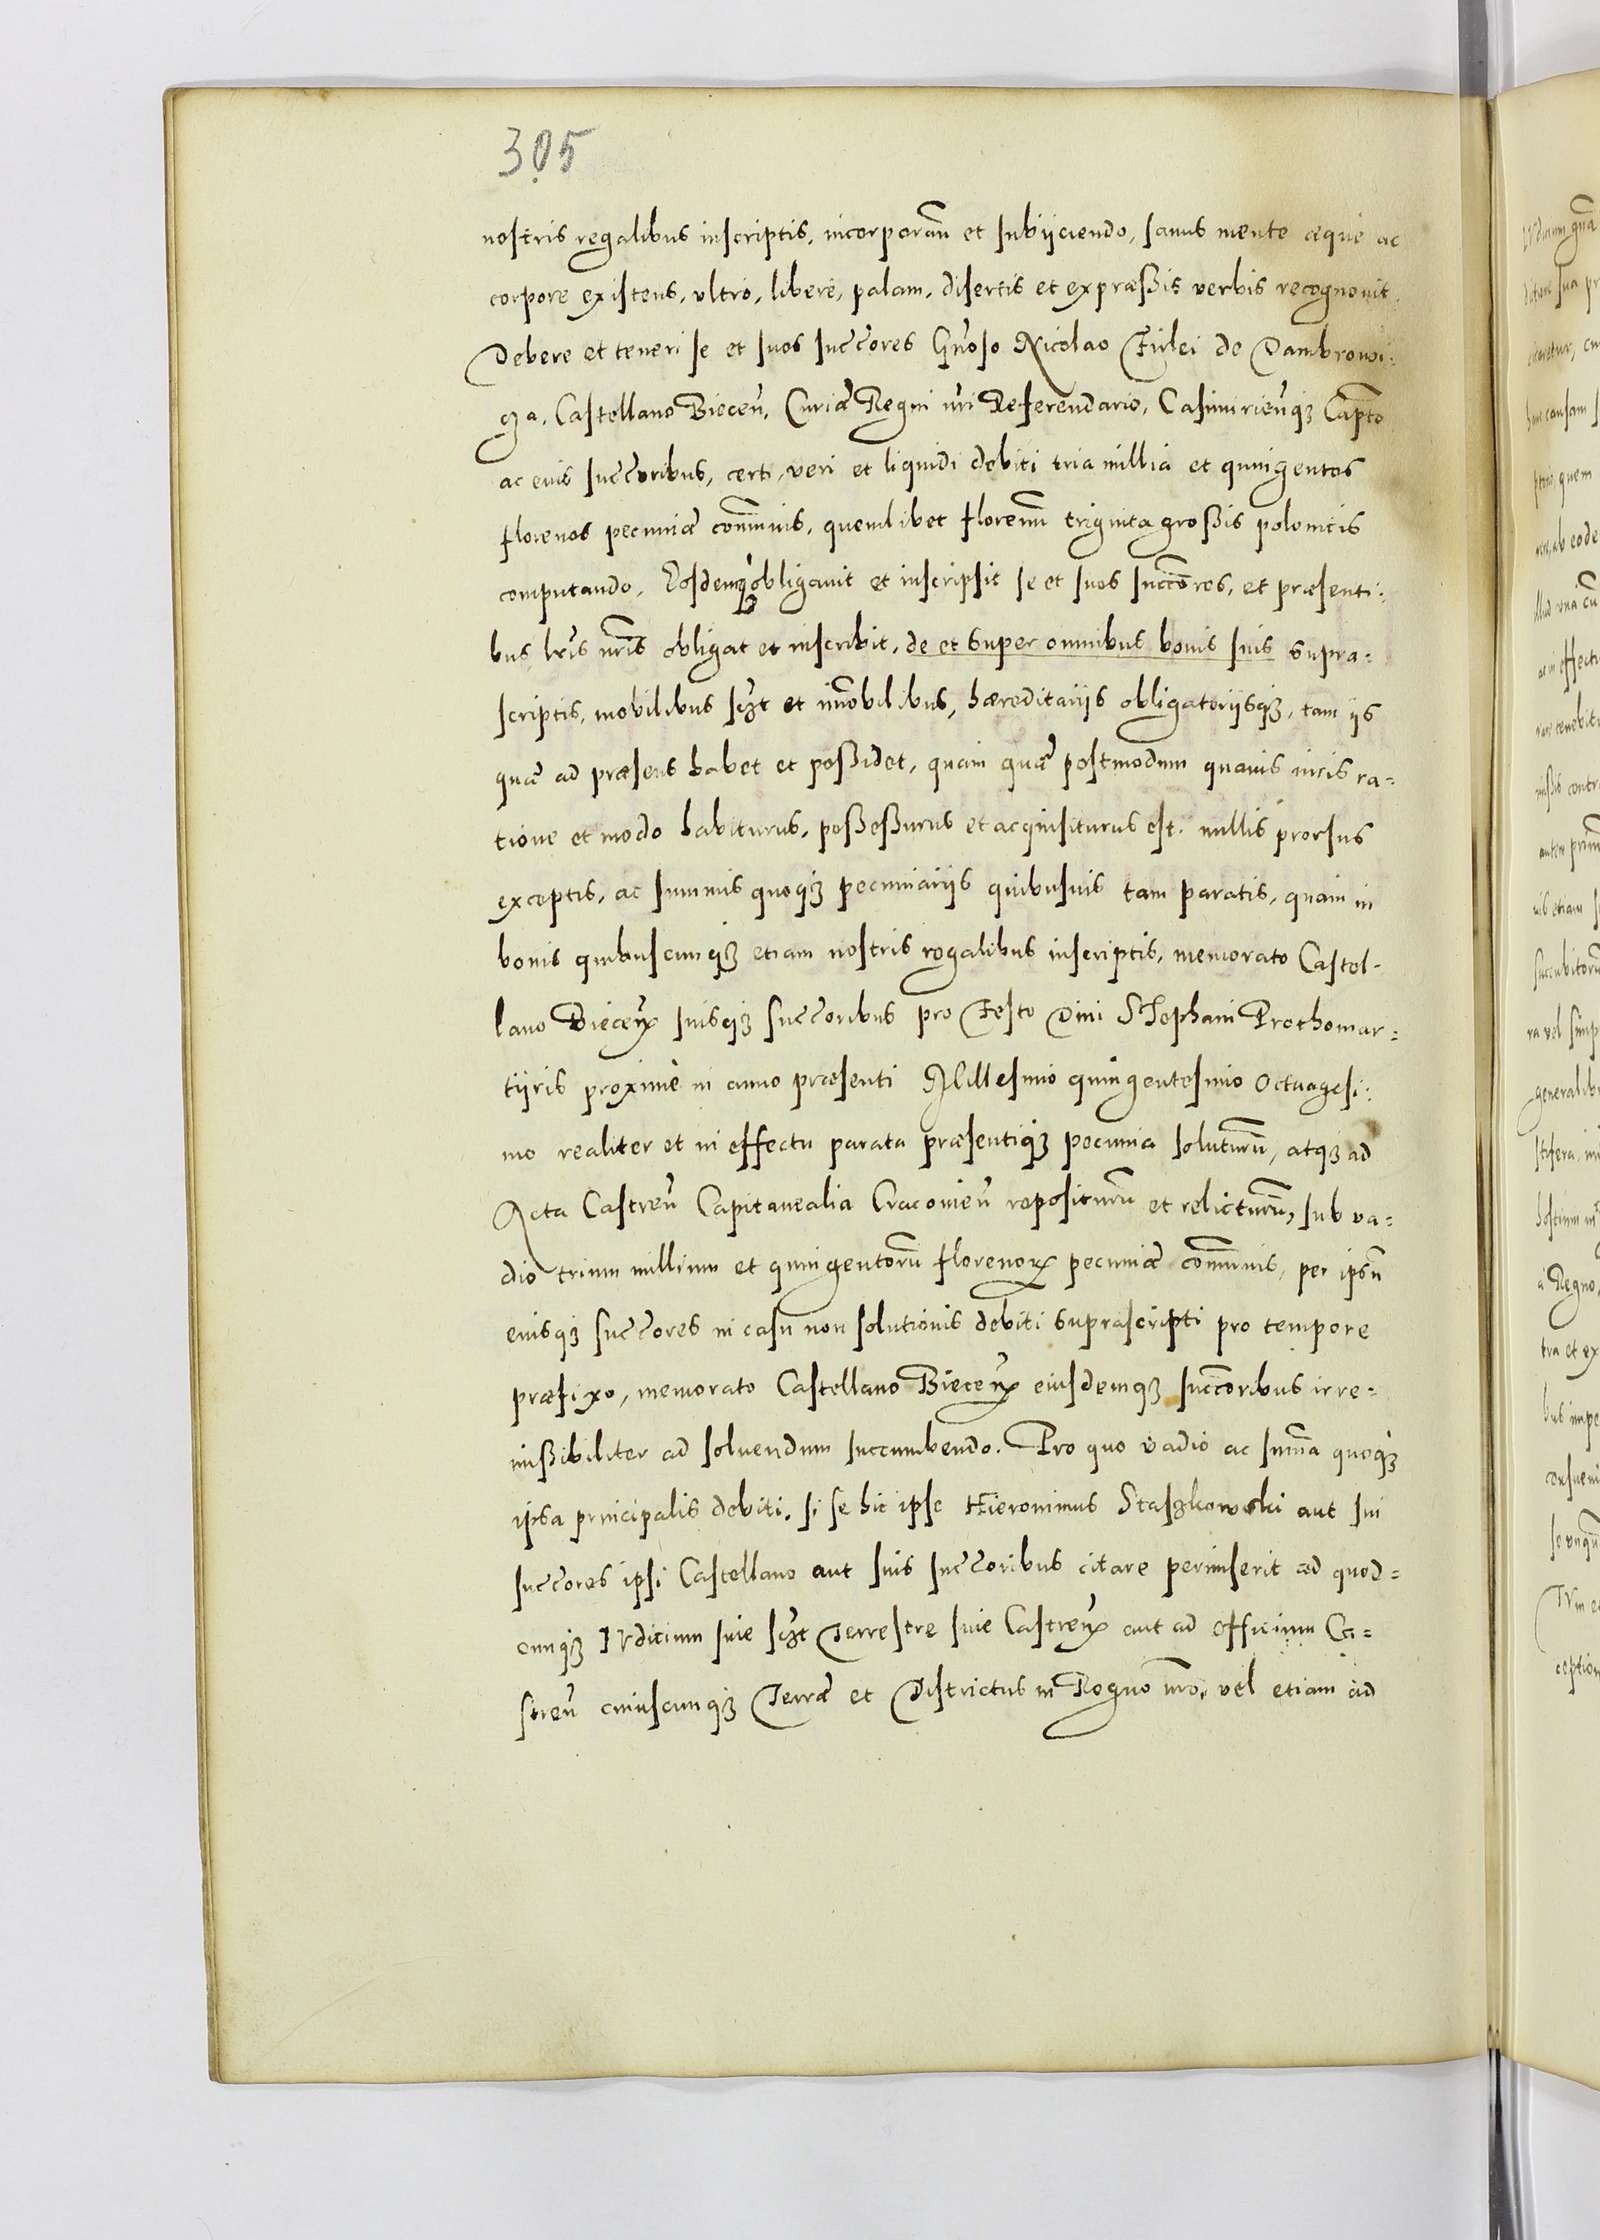 305
nostris regalibus inscriptis, incorporan̄ et subijciendo, sanus mente æque ac
corpore existens, vltro, libere, palam, disertis et expræssis verbis recognouit.
Debere et teneri se et suos succ̄ores Gn̄oso Nicolao Firlei de Dambrowi-
cza, Castellano Biecen̄, Curiæ Regni nr̄i Referendario, Casimirien̄q₃ Capt̄o
ac eius succ̄oribus, certi, veri et liquidi debiti tria millia et quingentos
florenos pecuniæ com̄unis, quemlibet florenū triginta grossis polonicis
computando. Eosdemq₃ obligauit et inscripsit se et suos succ̄ores, et præsenti-
bus lr̄is nr̄is obligat et inscribit, de et super omnibus bonis suis supra-
scriptis, mobilibus sczt et im̄obilibus, hæreditarijs obligatorijsq₃, tam ijs
quæ ad præsens habet et possidet, quam quæ postmodum quauis iuris ra-
tione et modo habiturus, possessurus et acquisiturus est. nullis prorsus
exceptis, ac summis quoq₃ pecuniarijs quibusuis tam paratis, quam in
bonis quibuscunq₃ etiam nostris regalibus inscriptis, memorato Castel-
lano Biecen̄ suisq₃ succ̄oribus pro Festo Diui Stephani Prothomar-
tijris proxime in anno præsenti Millesimo quingentesimo Octuagesi-
mo realiter et in effectu parata præsentiq₃ pecunia soluturū, atq₃ ad
Acta Castren̄ Capitanealia Cracouien̄ repositurū et relicturū, sub va-
dio trium millium et quingentorū florenoꝝ pecuniæ com̄unis, per ipsū
eiusq₃ succ̄ores in casu non solutionis debiti suprascripti pro tempore
præfixo, memorato Castellano Biecen̄ eiusdemq₃ succ̄oribus irre-
missibiliter ad soluendum succumbendo. Pro quo vadio ac sum̄a quoq₃
ipsa principalis debiti, si se hic ipse Hieronimus Staszkowski aut sui
succ̄ores ipsi Castellano aut suis succ̄oribus citare permiserit ad quod-
cunq₃ Iudicium siue sczt Terrestre siue Castren̄ aut ad officium Ca-
stren̄ cuiuscunq₃ Terræ et Districtus in Regno nr̄o, vel etiam ad